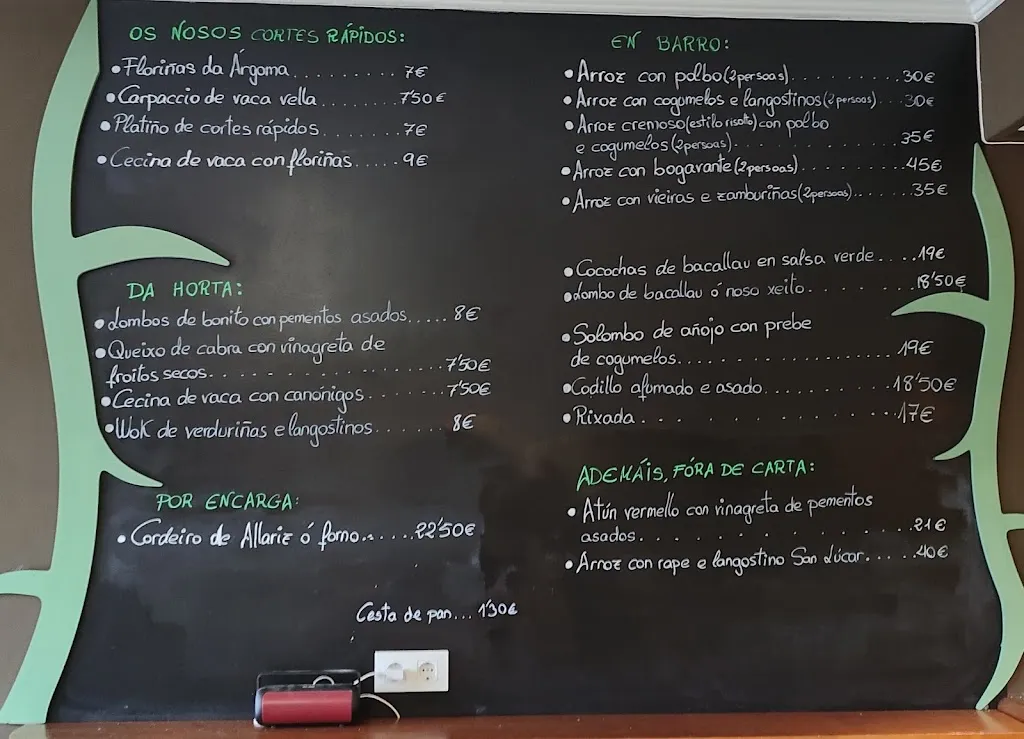 OS NOSOS CORTES RÁPIDOS:
•Floriñas da Árgoma........7€
•Carpaccio de vaca vella.......7'50€
•Platiño de cortes rápidos.......7€
•Cecina de vaca con floriñas.....9€
DA HORTA:
•Lombos de bonito con pementos asados.....8€
•Queixo de cabra con vinagreta de
froitos secos...............7'50€
•Cecina de vaca con canónigos.......7'50€
•Wok de verduriñas e langostinos.......8€
POR ENCARGA:
•Cordeiro de Allariz ó forno......22'50€
Cesta de pan...1'30€
EN BARRO:
•Arroz con polbo(2persoas)..........30€
•Arroz con cogumelos e langostinos(2persoas)...30€
•Arroz cremoso(estilo risotto)con polbo
e cogumelos(2persoas)............35€
•Arroz con bogavante(2persoas)........45€
•Arroz con vieiras e zamburiñas(2persoas)......35€
•Cocochas de bacallau en salsa verde....19€
•Lombo de bacallau ó noso xeito........18'50€
•Solombo de añojo con prebe
de cogumelos...............19€
•Codillo afumado e asado.........18'50€
•Rixada..............17€
ADEMÁIS, FÓRA DE CARTA:
•Atún vermello con vinagreta de pementos
asados................21€
•Arroz con rape e langostino San Lúcar.....40€